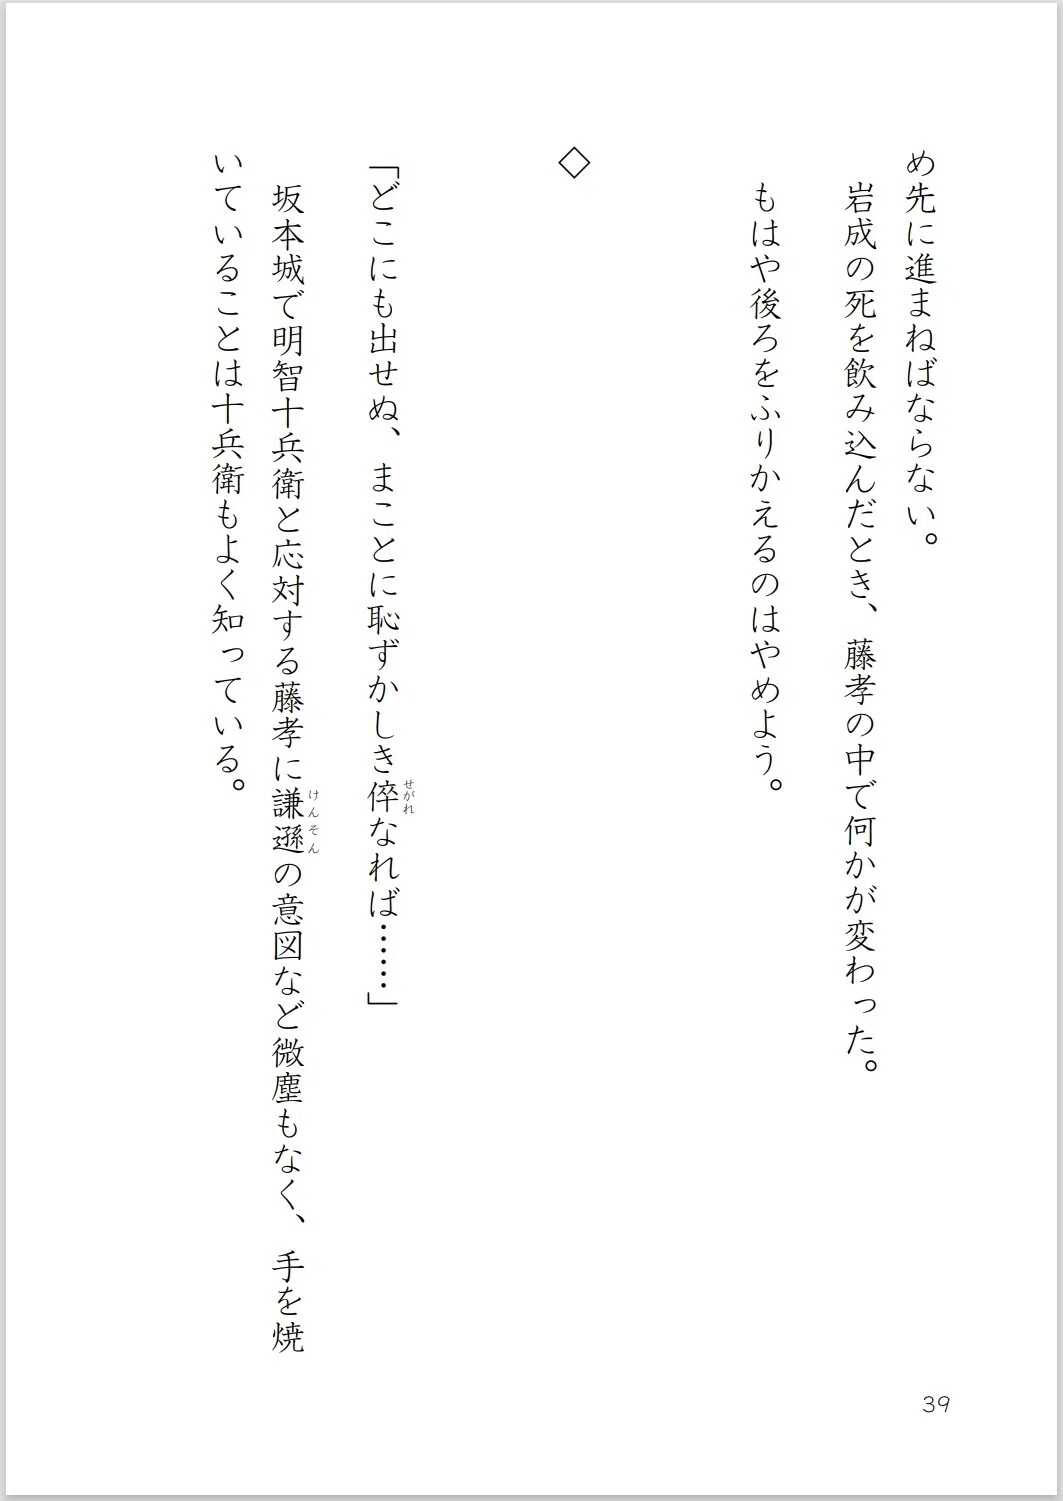 め先に進まねばならない。
岩成の死を飲み込んだとき、藤孝の中で何かが変わった。
もはや後ろをふりかえるのはやめよう。
◇
「どこにも出せぬ、まことに恥ずかしき倅なれば……」
せがれ
坂本城で明智十兵衛と応対する藤孝に謙遜の意図など微塵もなく、手を焼
けんそん
いていることは十兵衛もよく知っている。
39